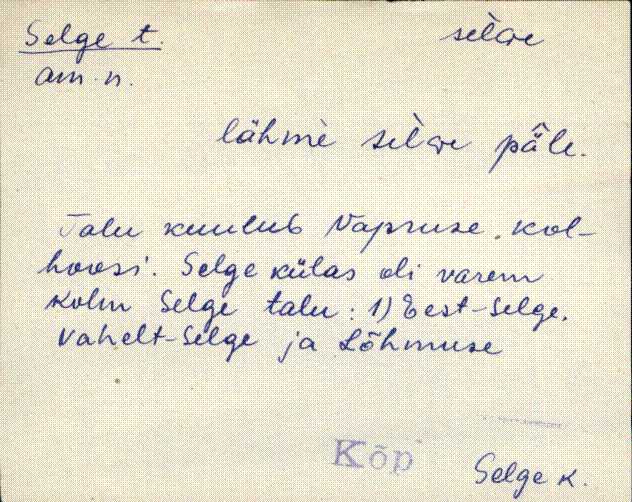 Selge t. selge
am. n.
lähme selge päle.
Talu kuulub Vapruse kol-
hoosi. Selge külas oli varem
kolm Selge talu: 1) Eest-Selge,
Vahelt-Selge ja Lõhmuse
Kõp
Selge k.